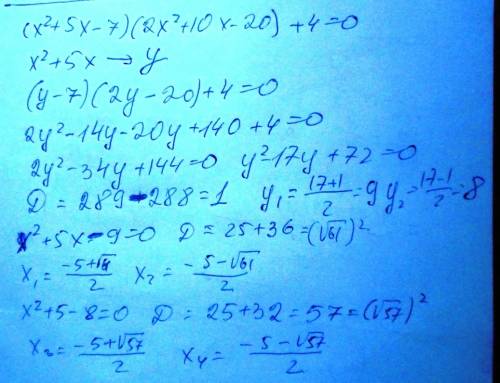 (x²+5x-7)(2x²+10x-20)+4=0
x²+5x → y
(y-7)(2y-20)+4=0
2y²-14y-20y+140+4=0
2y²-34y+144=0 y²-17y+72=0
D = 289-288=1 y₁ = (17+1)/2 = 9 y₂ = (17-1)/2 = 8
x²+5x-9=0 D = 25+36=(√61)²
x₁ = x₂ = (-5-√61)/2
x²+5-8=0 D = 25+32=57=(√57)²
x₃ = (-5+√57)/2 x₄ = (-5-√57)/2